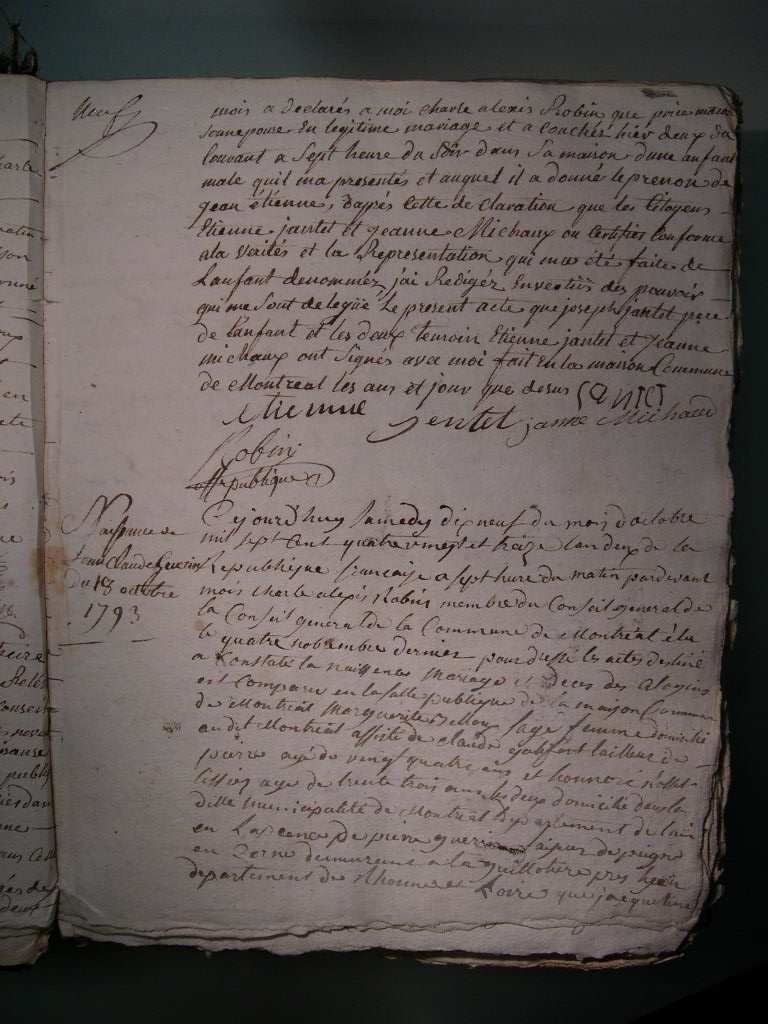 neuf
mois a declarés a moi charle alexis Robin que
Sonnepouse En legitime mariage et a couchés hier deux du
Couvant a Sept heure du Soir dans Sa maison dune anfant
male quil ma presentés et auquel il a donné le prenon de
jean étienne, dappés cette de claration que les Citoyens
Etienne jantet et jeanne Michaux on Certifies Conforme
ala verités et la Representation qui ma été faite de
Lanfant denommez jai Redigéz Envertüs des pouvoir
qui me Sont de legüe Le present acte que joseph jantet pere
de lanfant et les deux temoin Etienne jantet et jeanne
michaux ont Signés avec moi fait En la maison Commune
de Montreal les ans et jour que desus janTeT
Etienne jentet janne Michaud
Robin
publique
Naissance de
jean Claude
du 18 octobre
1793
Cejourdhuy Samedy dix neuf du mois doctobre
mil sept cent quatre vingt et treize lan deux de la
Republique française a sept hure du matin pardevant
mois charle alexis Robin membre du Conseil general de
la Conseil general de la Commune de Montréal élu
le quatre novembre dernier pour les actes destiné
a Constaté la naissences Mariage et deces des Citoyins
est Comparu en la Salle publique de la maison Commune
de Montréal Marguerite Sage femme domicilié
audit Montréal assisté de Claude tailleur de
pierre agé de vingt quatre ans et honnoré
age de trente trois ans les deux domicilié dans la
ditte municipalité de Montréal Departement de lain
en Lapcence de pierre de peigne
en Corne demeurant a la Guillotiere pres
departement du Rhonne et Loire que jacqueline